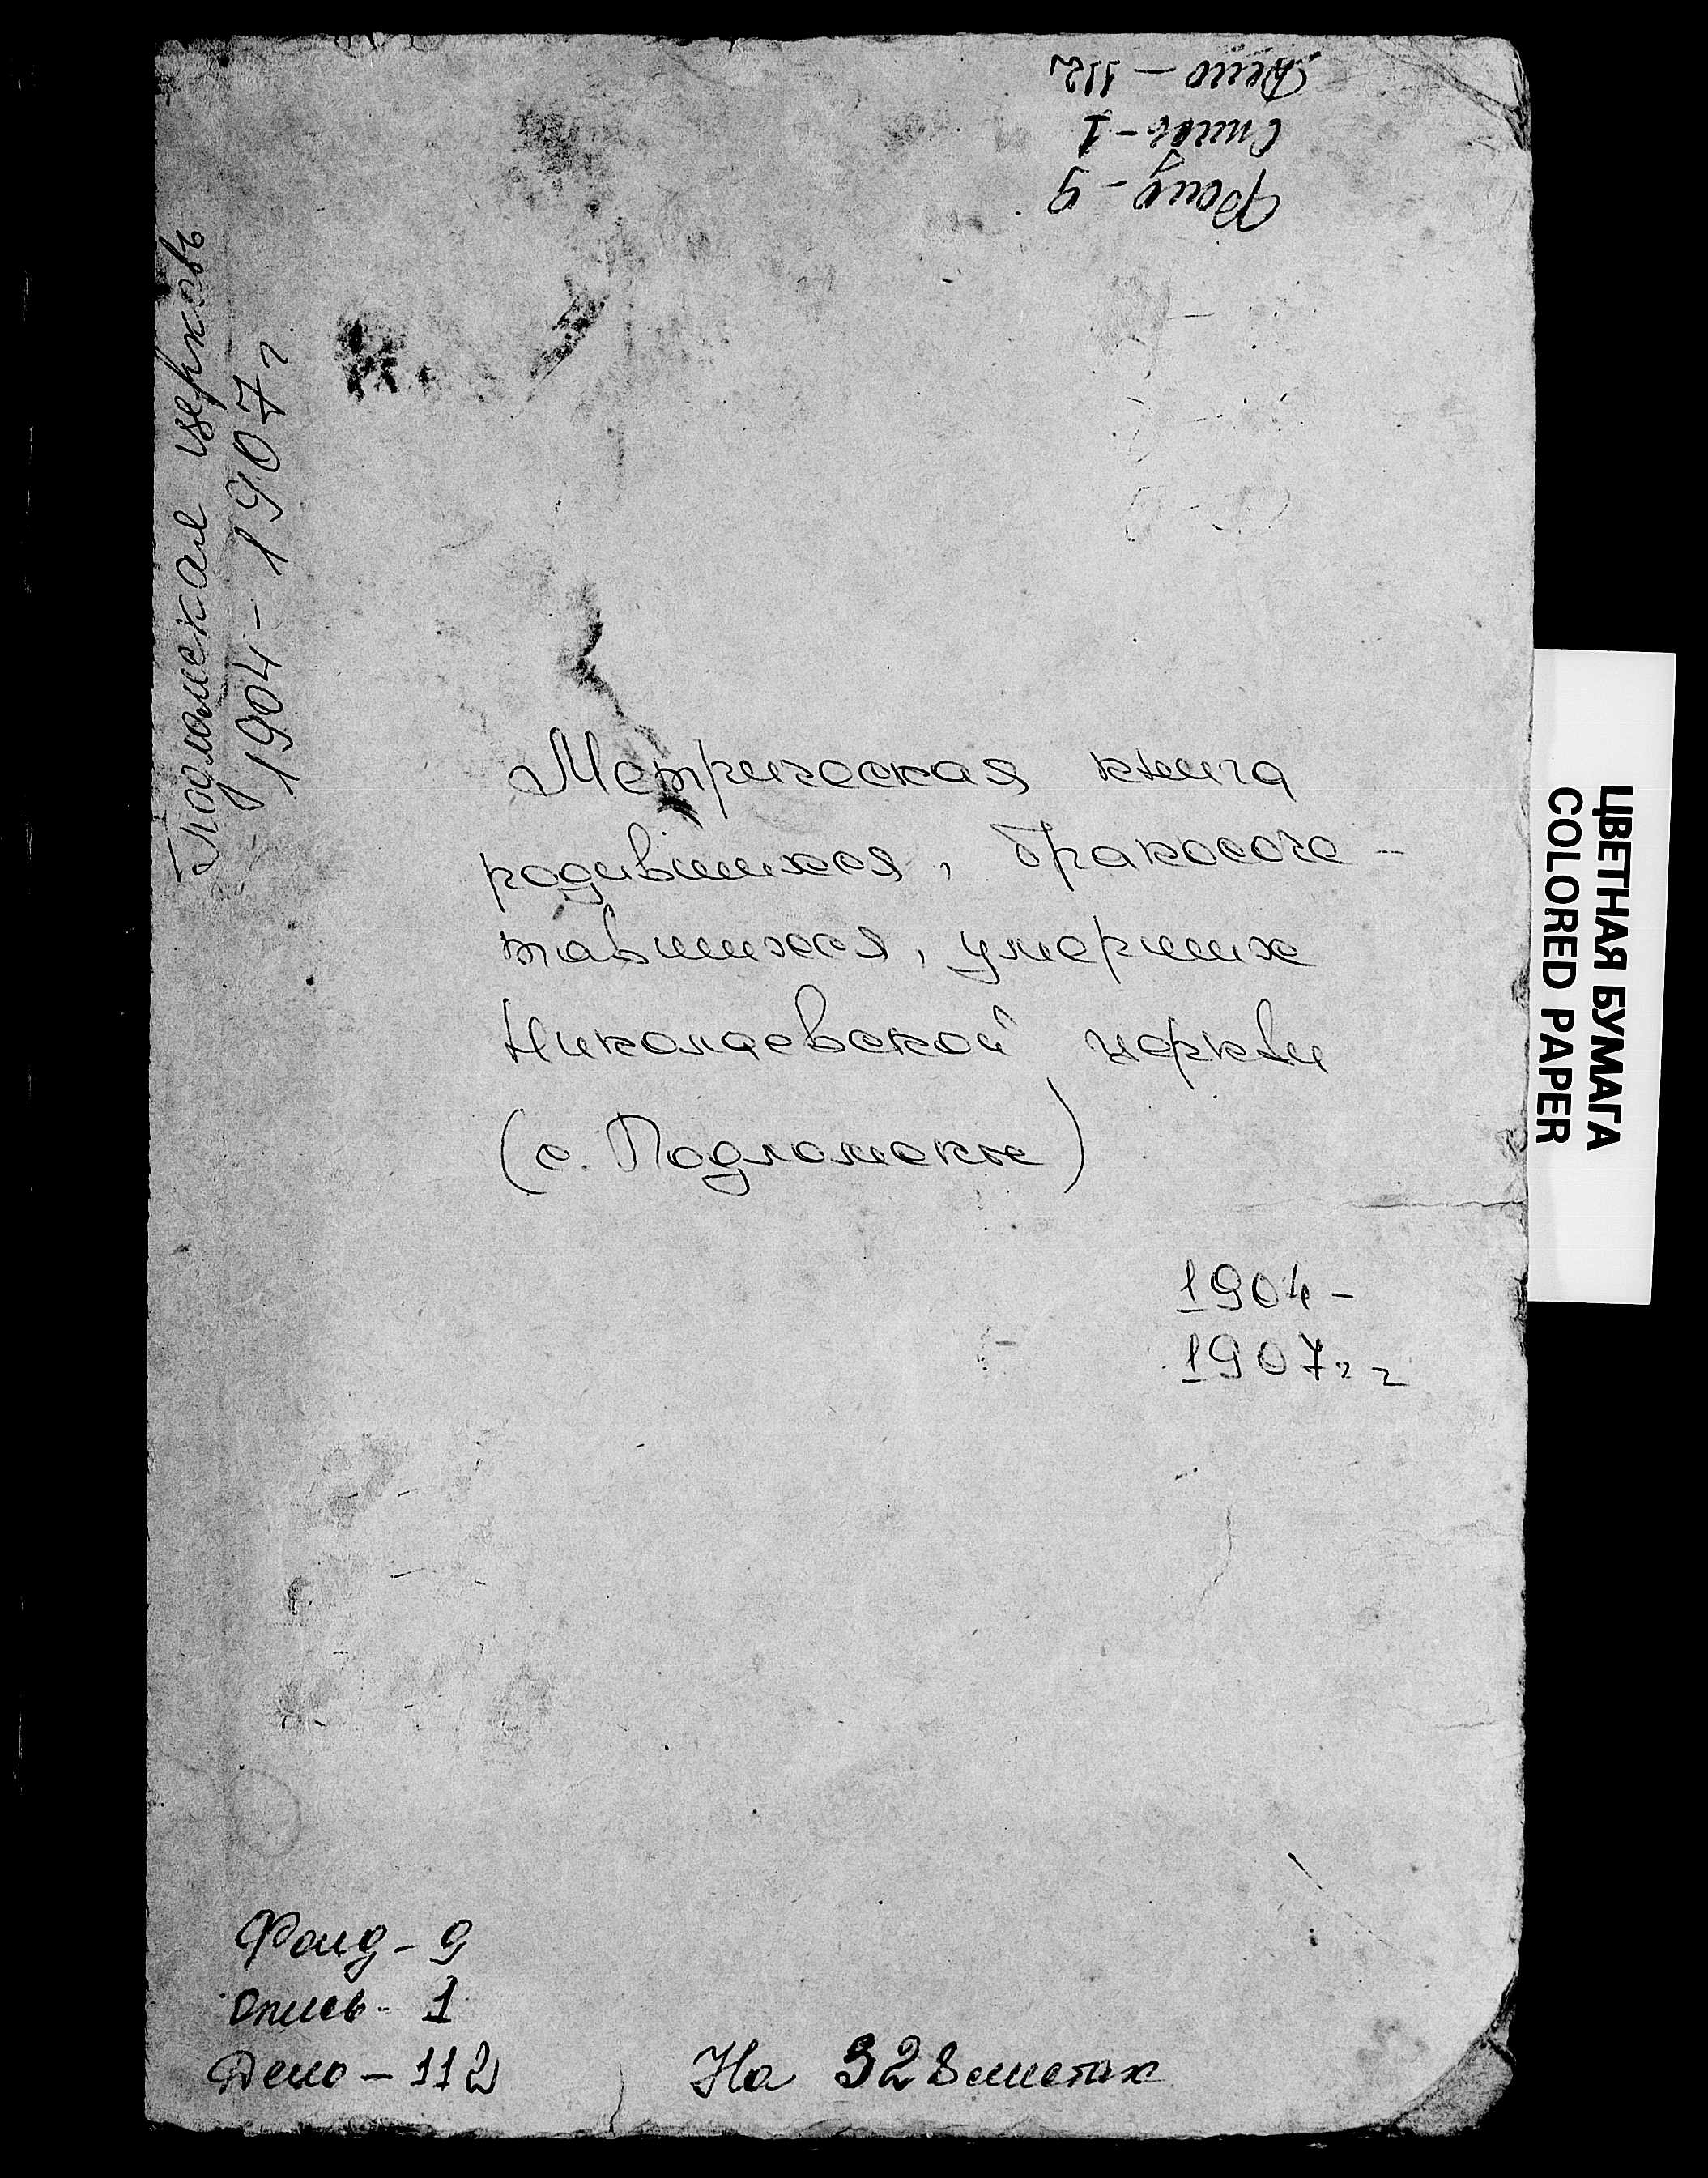 Дело - 112
Опись - 1
Фонд - 9
Подломская церковь
1904 - 1907 г
Метрическая книга
родившихся, бракосоче-
тавшихся, умерших
Николаевской церкви
(с. Подломское)
1904 -
1907 г г
ЦВЕТНАЯ БУМАГА
COLORED PAPER
Фонд - 9
Опись - 1
Дело - 112
На 328 листах